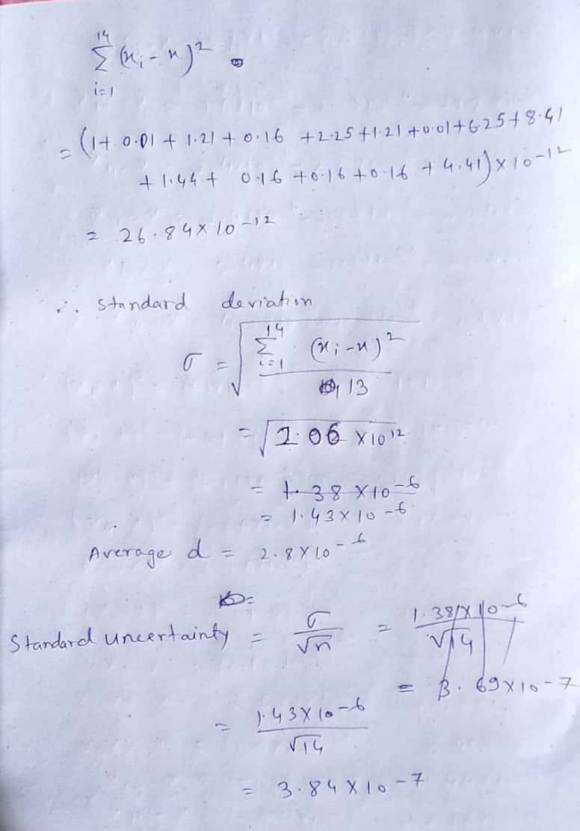 14
Σ (xi - x)²
i=1
= (1 + 0.01 + 1.21 + 0.16 + 2.25 + 1.21 + 0.01 + 6.25 + 8.41
+ 1.44 + 0.16 + 0.16 + 0.16 + 4.41) × 10⁻¹²
= 26.84 × 10⁻¹²
∴ Standard deviation
σ = √(Σ_{i=1}^{14} (xi - x)² / 13)
= √(2.06 × 10¹²)
= 1.38 × 10⁻⁶
= 1.43 × 10⁻⁶
Average d = 2.8 × 10⁻⁶
Standard uncertainty = σ/√n = 1.38 × 10⁻⁶/√14
= 3.69 × 10⁻⁷
= 1.43 × 10⁻⁶/√14
= 3.84 × 10⁻⁷